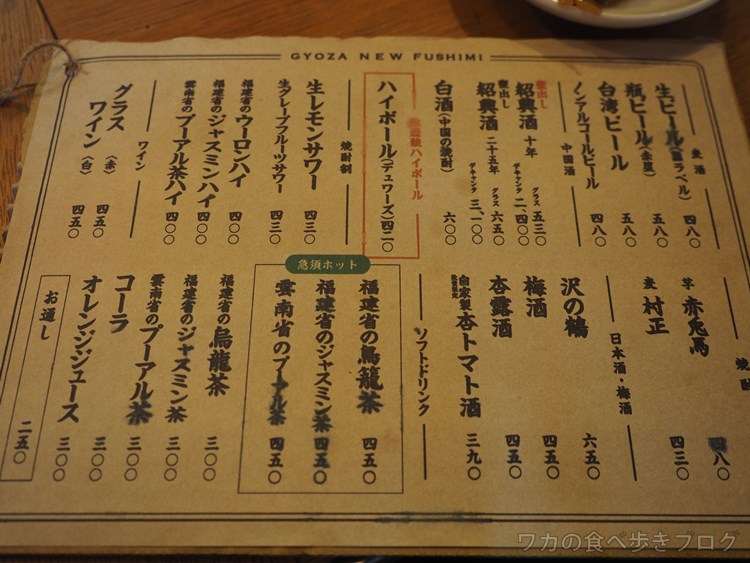 GYOZA NEW FUSHIMI
麦酒
生ビール（黒ラベル） 四八〇
瓶ビール（赤星） 五八〇
台湾ビール 五八〇
ノンアルコールビール 四八〇
中国酒
甕出し
紹興酒 十年 グラス 五三〇
デキャンタ 二、四〇〇
甕出し
紹興酒 二十五年 グラス 六五〇
デキャンタ 三、一〇〇
白酒（中国の焼酎） 六〇〇
ハイボール
ハイボール（デュワーズ）四二〇
焼酎割
生レモンサワー 四三〇
生グレープフルーツサワー 四三〇
福建省のウーロンハイ 四〇〇
福建省のジャスミンハイ 四〇〇
雲南省のプーアル茶ハイ 四〇〇
ワイン
グラスワイン（赤） 四五〇
（白） 四五〇
焼酎
芋 赤兎馬 四八〇
麦 村正 四三〇
日本酒・梅酒
沢の鶴 六五〇
梅酒 四五〇
杏露酒 四五〇
自家製 杏トマト酒 三九〇
ソフトドリンク
急須ホット
福建省の烏龍茶 四五〇
福建省のジャスミン茶 四五〇
雲南省のプーアル茶 四五〇
福建省の烏龍茶 三〇〇
福建省のジャスミン茶 三〇〇
雲南省のプーアル茶 三〇〇
コーラ 三〇〇
オレンジジュース 三〇〇
お通し 二五〇
ワカの食べ歩きブログ